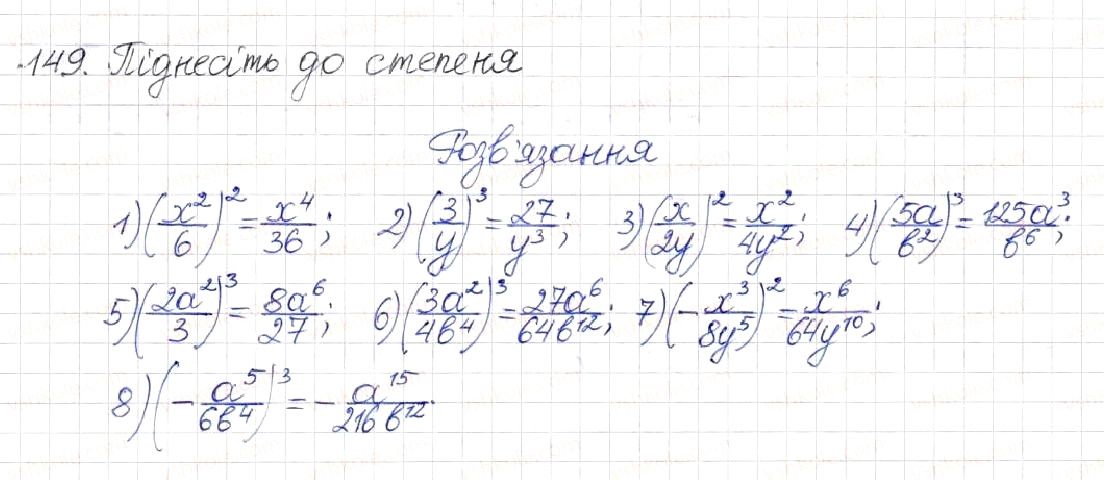 149. Піднесіть до степеня
Розв'язання
1) (x²/6)² = x⁴/36; 2) (3/y)³ = 27/y³; 3) (x/2y)² = x²/4y²; 4) (5a/b²)³ = 125a³/b⁶;
5) (2a²/3)³ = 8a⁶/27; 6) (3a²/4b⁴)³ = 27a⁶/64b¹²; 7) (-x³/8y⁵)² = x⁶/64y¹⁰;
8) (-a⁵/6b⁴)³ = -a¹⁵/216b¹².